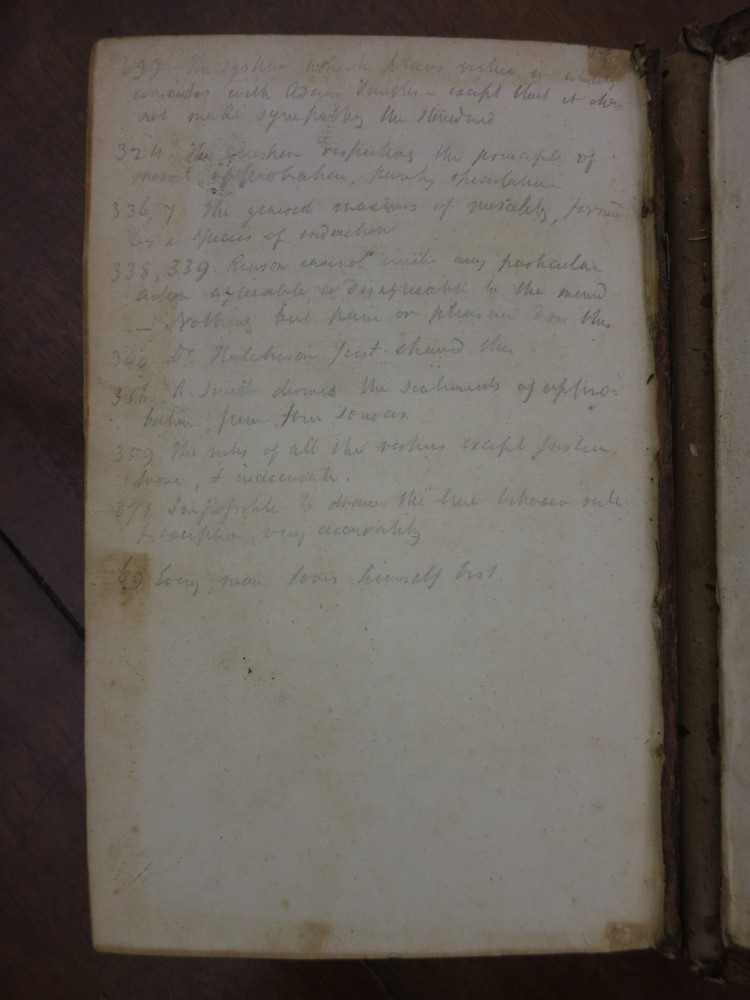 299 The system which places virtue in utility
coincides with Adam Smith's – except that it does
not make sympathy the standard
324 The question respecting the principle of
moral approbation, purely speculative
336, 7 The general maxims of morality, formed
by a species of induction
338, 339 Reason cannot make any particular
action agreeable or disagreeable to the mind
— Nothing but pain or pleasure does this
340 Dr. Hutcheson first shewed this
356 A. Smith derives the sentiments of appro=
bation from four sources
359 The rules of all the virtues except Justice,
loose, & inaccurate.
371 Impossible to draw the line between rule
& exception, very accurately
69 Every man loves himself best.